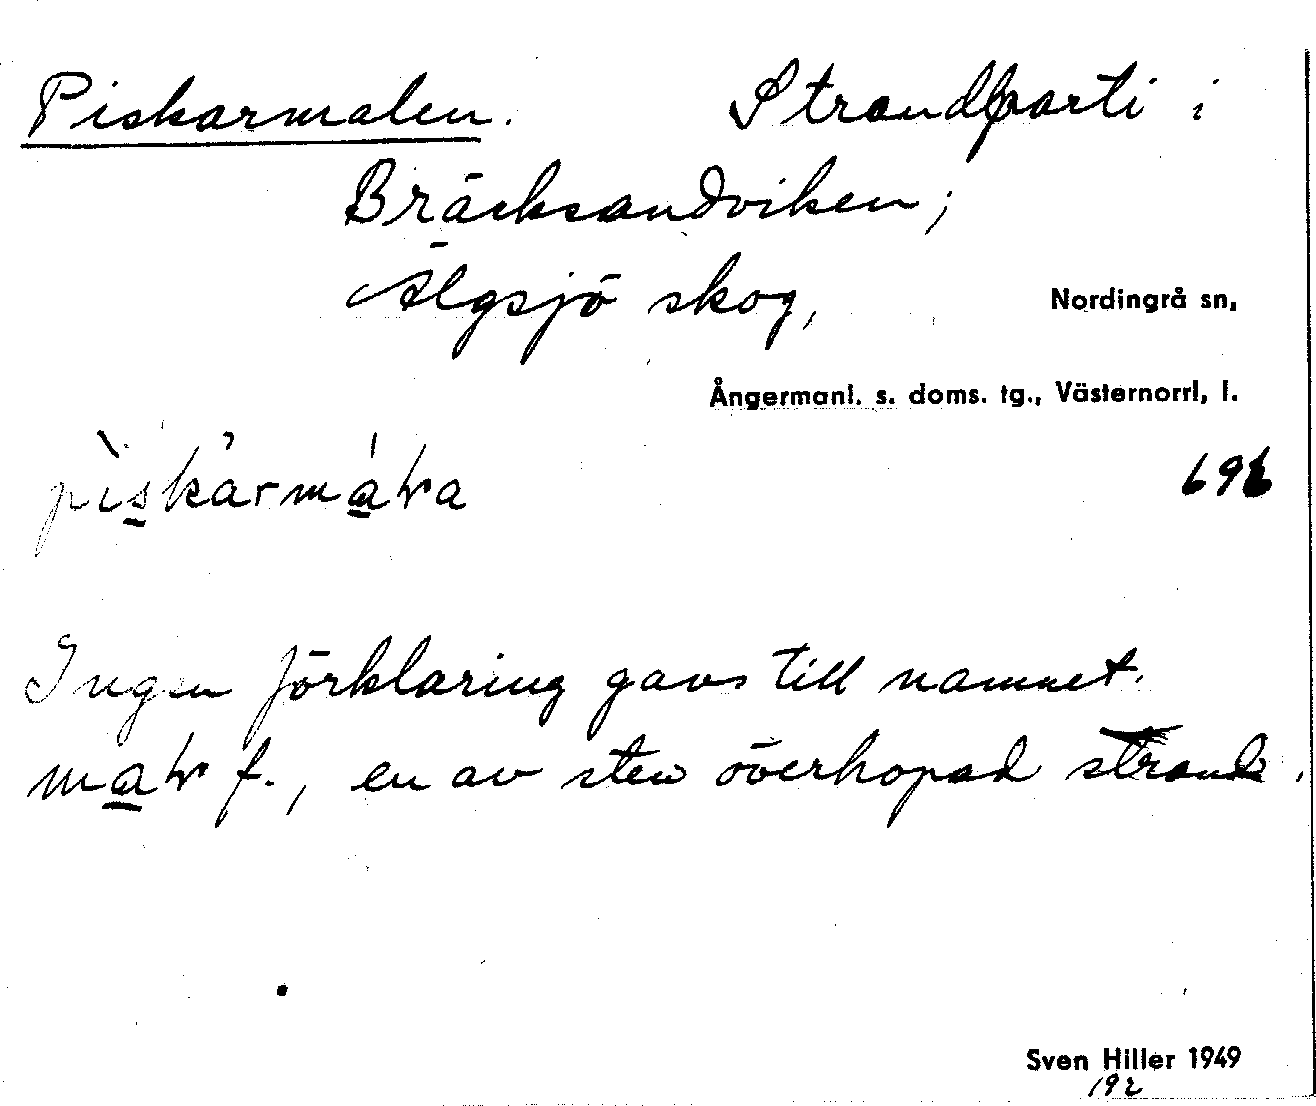 Piskarmalen. Strandparti i
Bräcksandviken;
Älgsjö skog, Nordingrå sn,
Ångermanl. s. doms. tg., Västernorrl, l.
696
Ingen förklaring gavs till namnet.
f., en av sten överhopad strand.
Sven Hiller 1949
192